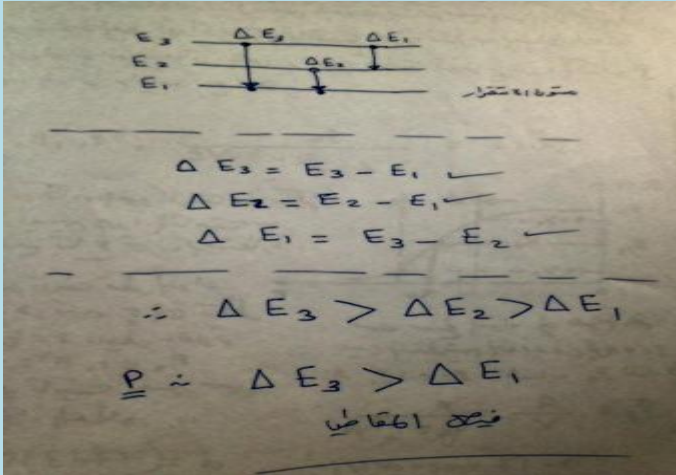 E₃ Δ E₃ Δ E₁
E₂ Δ E₂
E₁ مستوى الاستقرار
Δ E₃ = E₃ - E₁
Δ E₂ = E₂ - E₁
Δ E₁ = E₃ - E₂
∴ Δ E₃ > Δ E₂ > Δ E₁
P ∴ Δ E₃ > Δ E₁